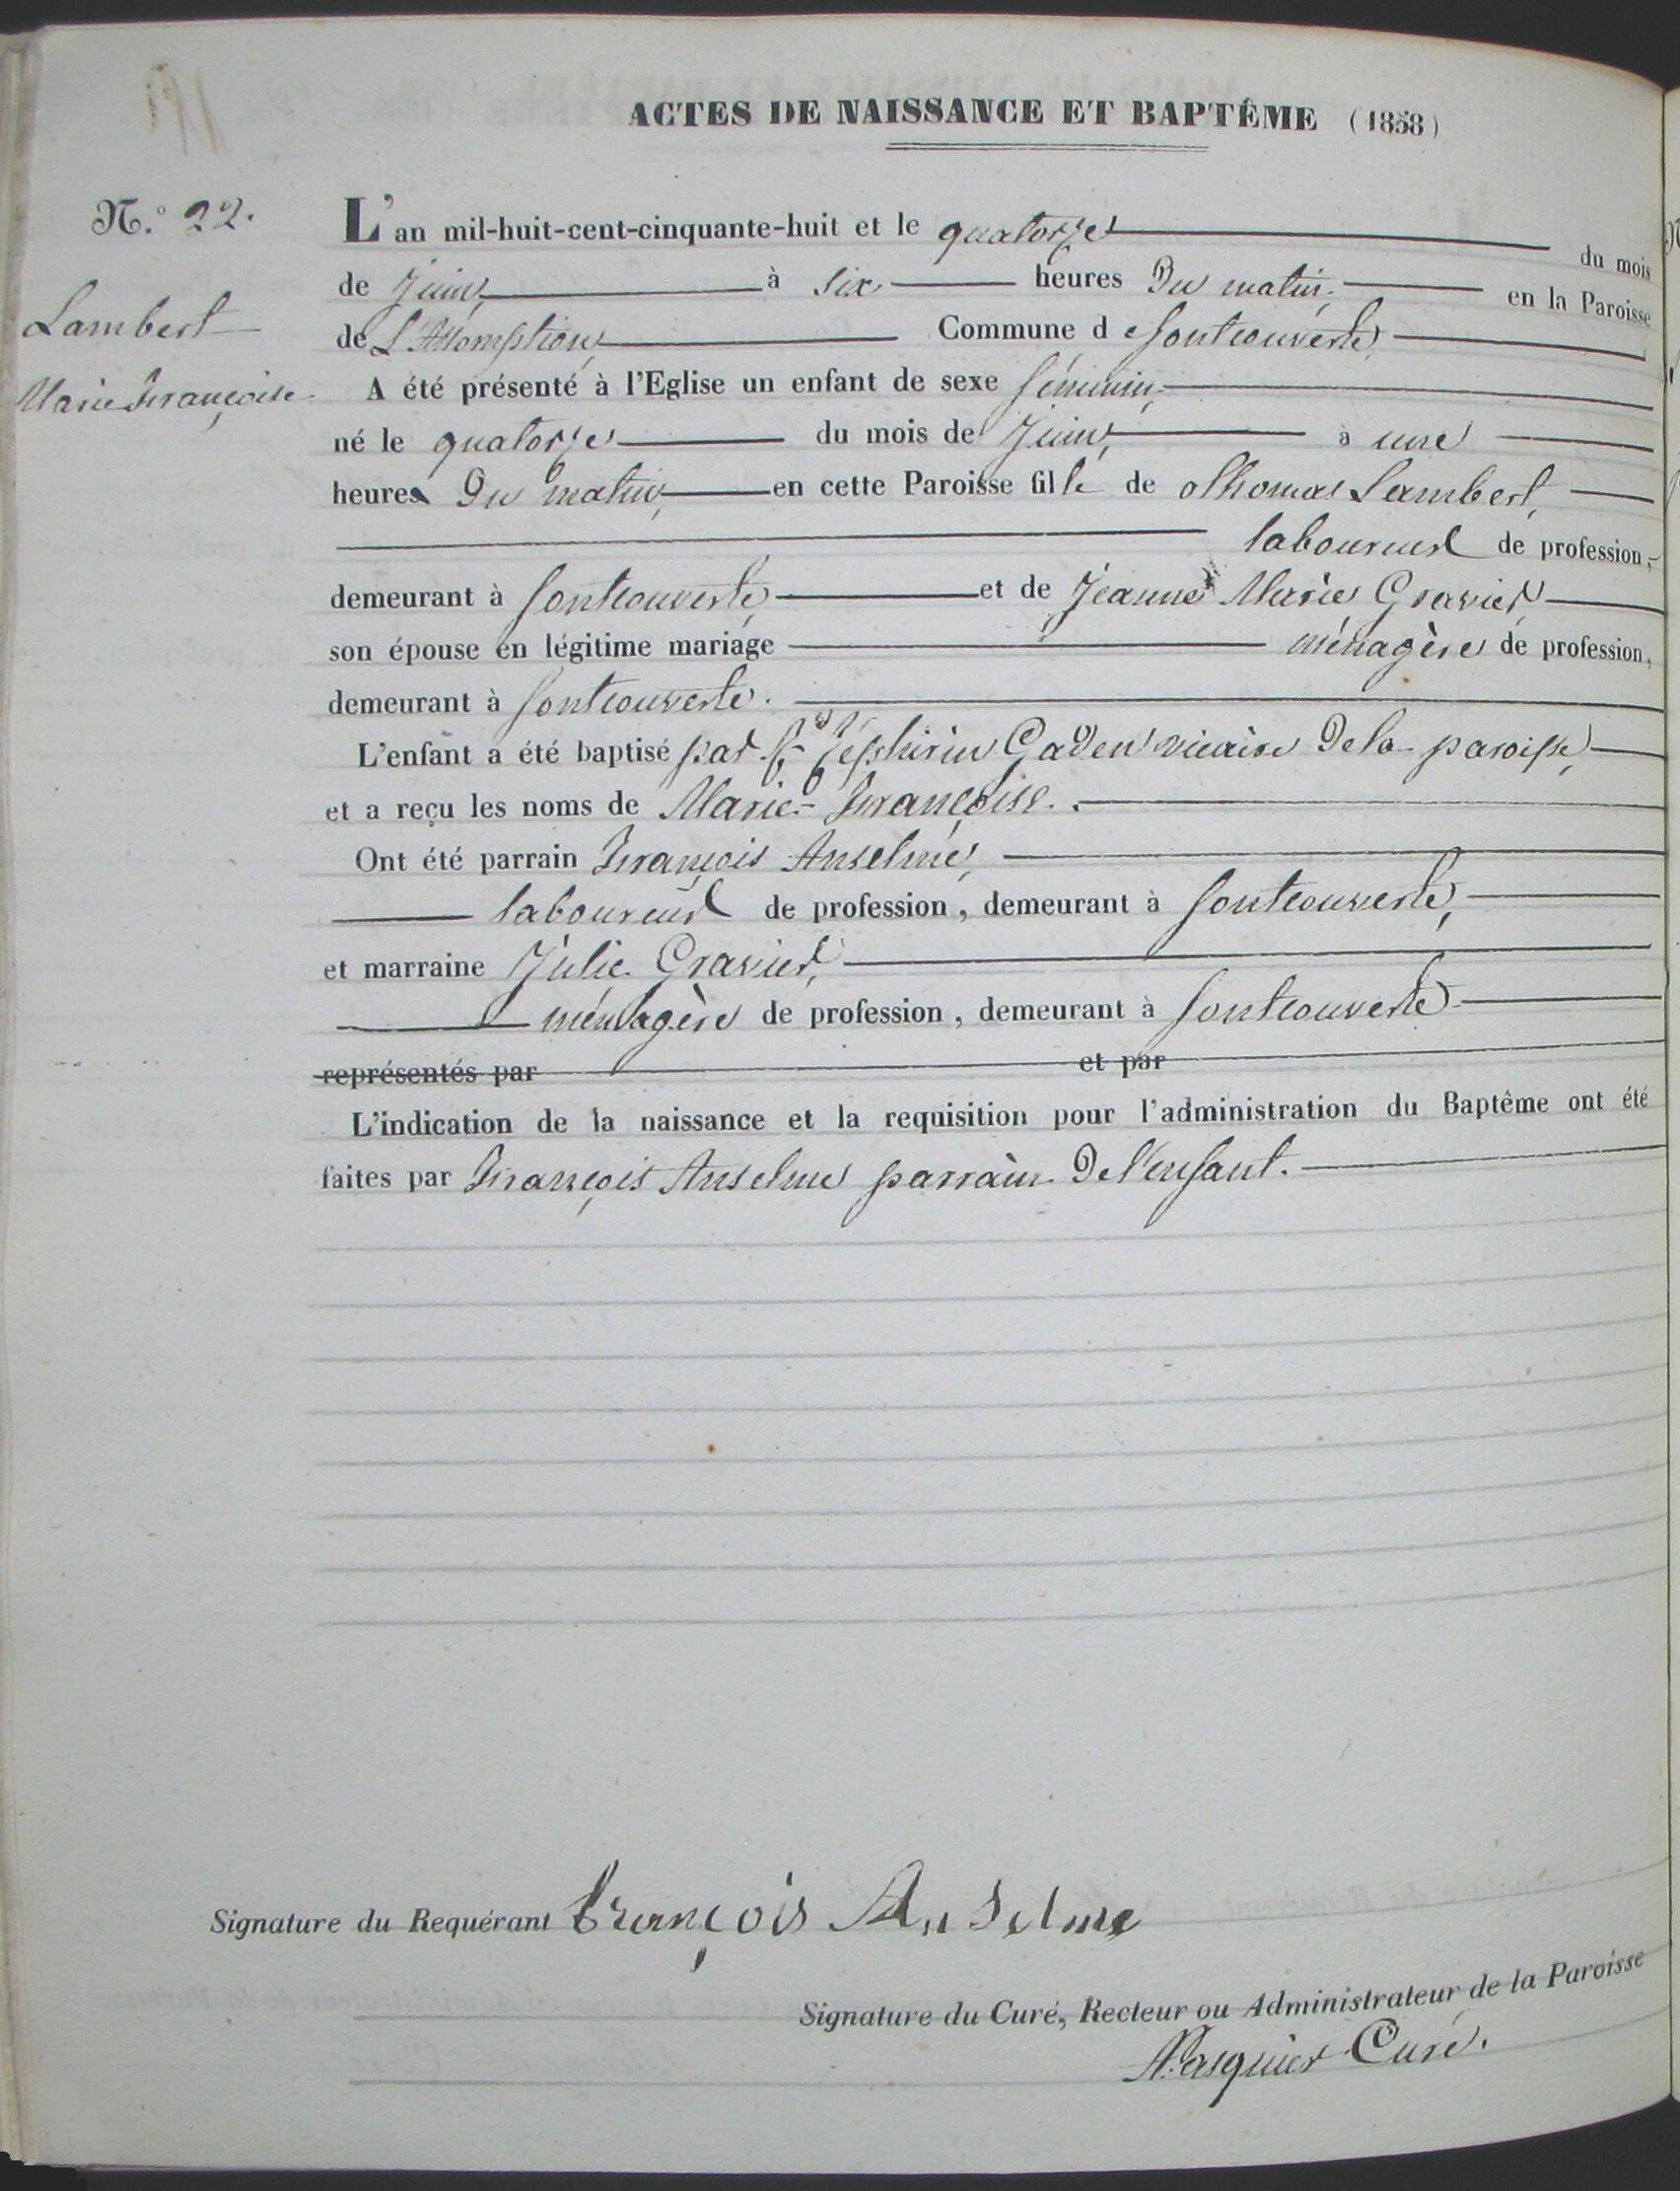 ACTES DE NAISSANCE ET BAPTÊME (1858)
N.° 22.
Lambert
Marie Françoise
L'an mil-huit-cent-cinquante-huit et le quatorze du mois
de Juin, à six heures Du matin, en la Paroisse
de L'Assomption, Commune de fontcouverte,
A été présenté à l'Eglise un enfant de sexe féminin,
né le quatorze du mois de Juin, à une
heures Du matin, en cette Paroisse fille de Thomas Lambert,
laboureur de profession,
demeurant à fontcouverte, et de Jeanne Marie Gravier,
son épouse en légitime mariage ménagère de profession,
demeurant à fontcouverte.
L'enfant a été baptisé par Zéphirin Gaden vicaire De la paroisse,
et a reçu les noms de Marie-Françoise.
Ont été parrain François Anselme,
laboureur de profession, demeurant à fontcouverte,
et marraine Julie Gravier,
ménagère de profession, demeurant à fontcouverte
représentés par et par
L'indication de la naissance et la requisition pour l'administration du Baptême ont été
faites par François Anselme parrain De l'enfant.
Signature du Requérant François Anselme
Signature du Curé, Recteur ou Administrateur de la Paroisse
Pasquier Curé.